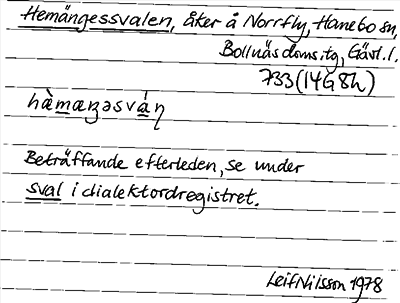 Hemängessvalen, åker å Norrfly, Hanebo sn,
Bollnäs doms.tg, Gävl.l.
733 (14G8h)
hὰmaŋəsvάn̥
Beträffande efterleden, se under
sval i dialektordregistret.
Leif Nilsson 1978